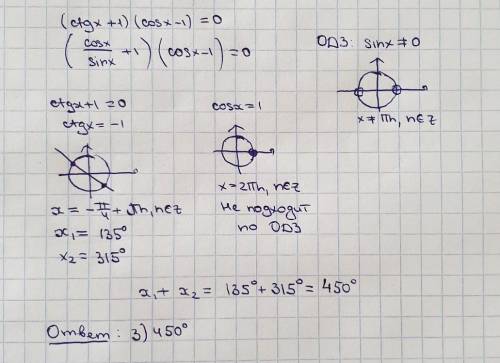 (ctgx+1)(cosx-1)=0
(cosx/sinx +1)(cosx-1)=0
ОДЗ: sinx≠0
x≠πn, n∈Z
ctgx+1=0
ctgx=-1
x=-π/4+πn, n∈Z
x₁=135°
x₂=315°
cosx=1
x=2πn, n∈Z
Не подходит
по ОДЗ
x₁+x₂=135°+315°=450°
Ответ: 3) 450°